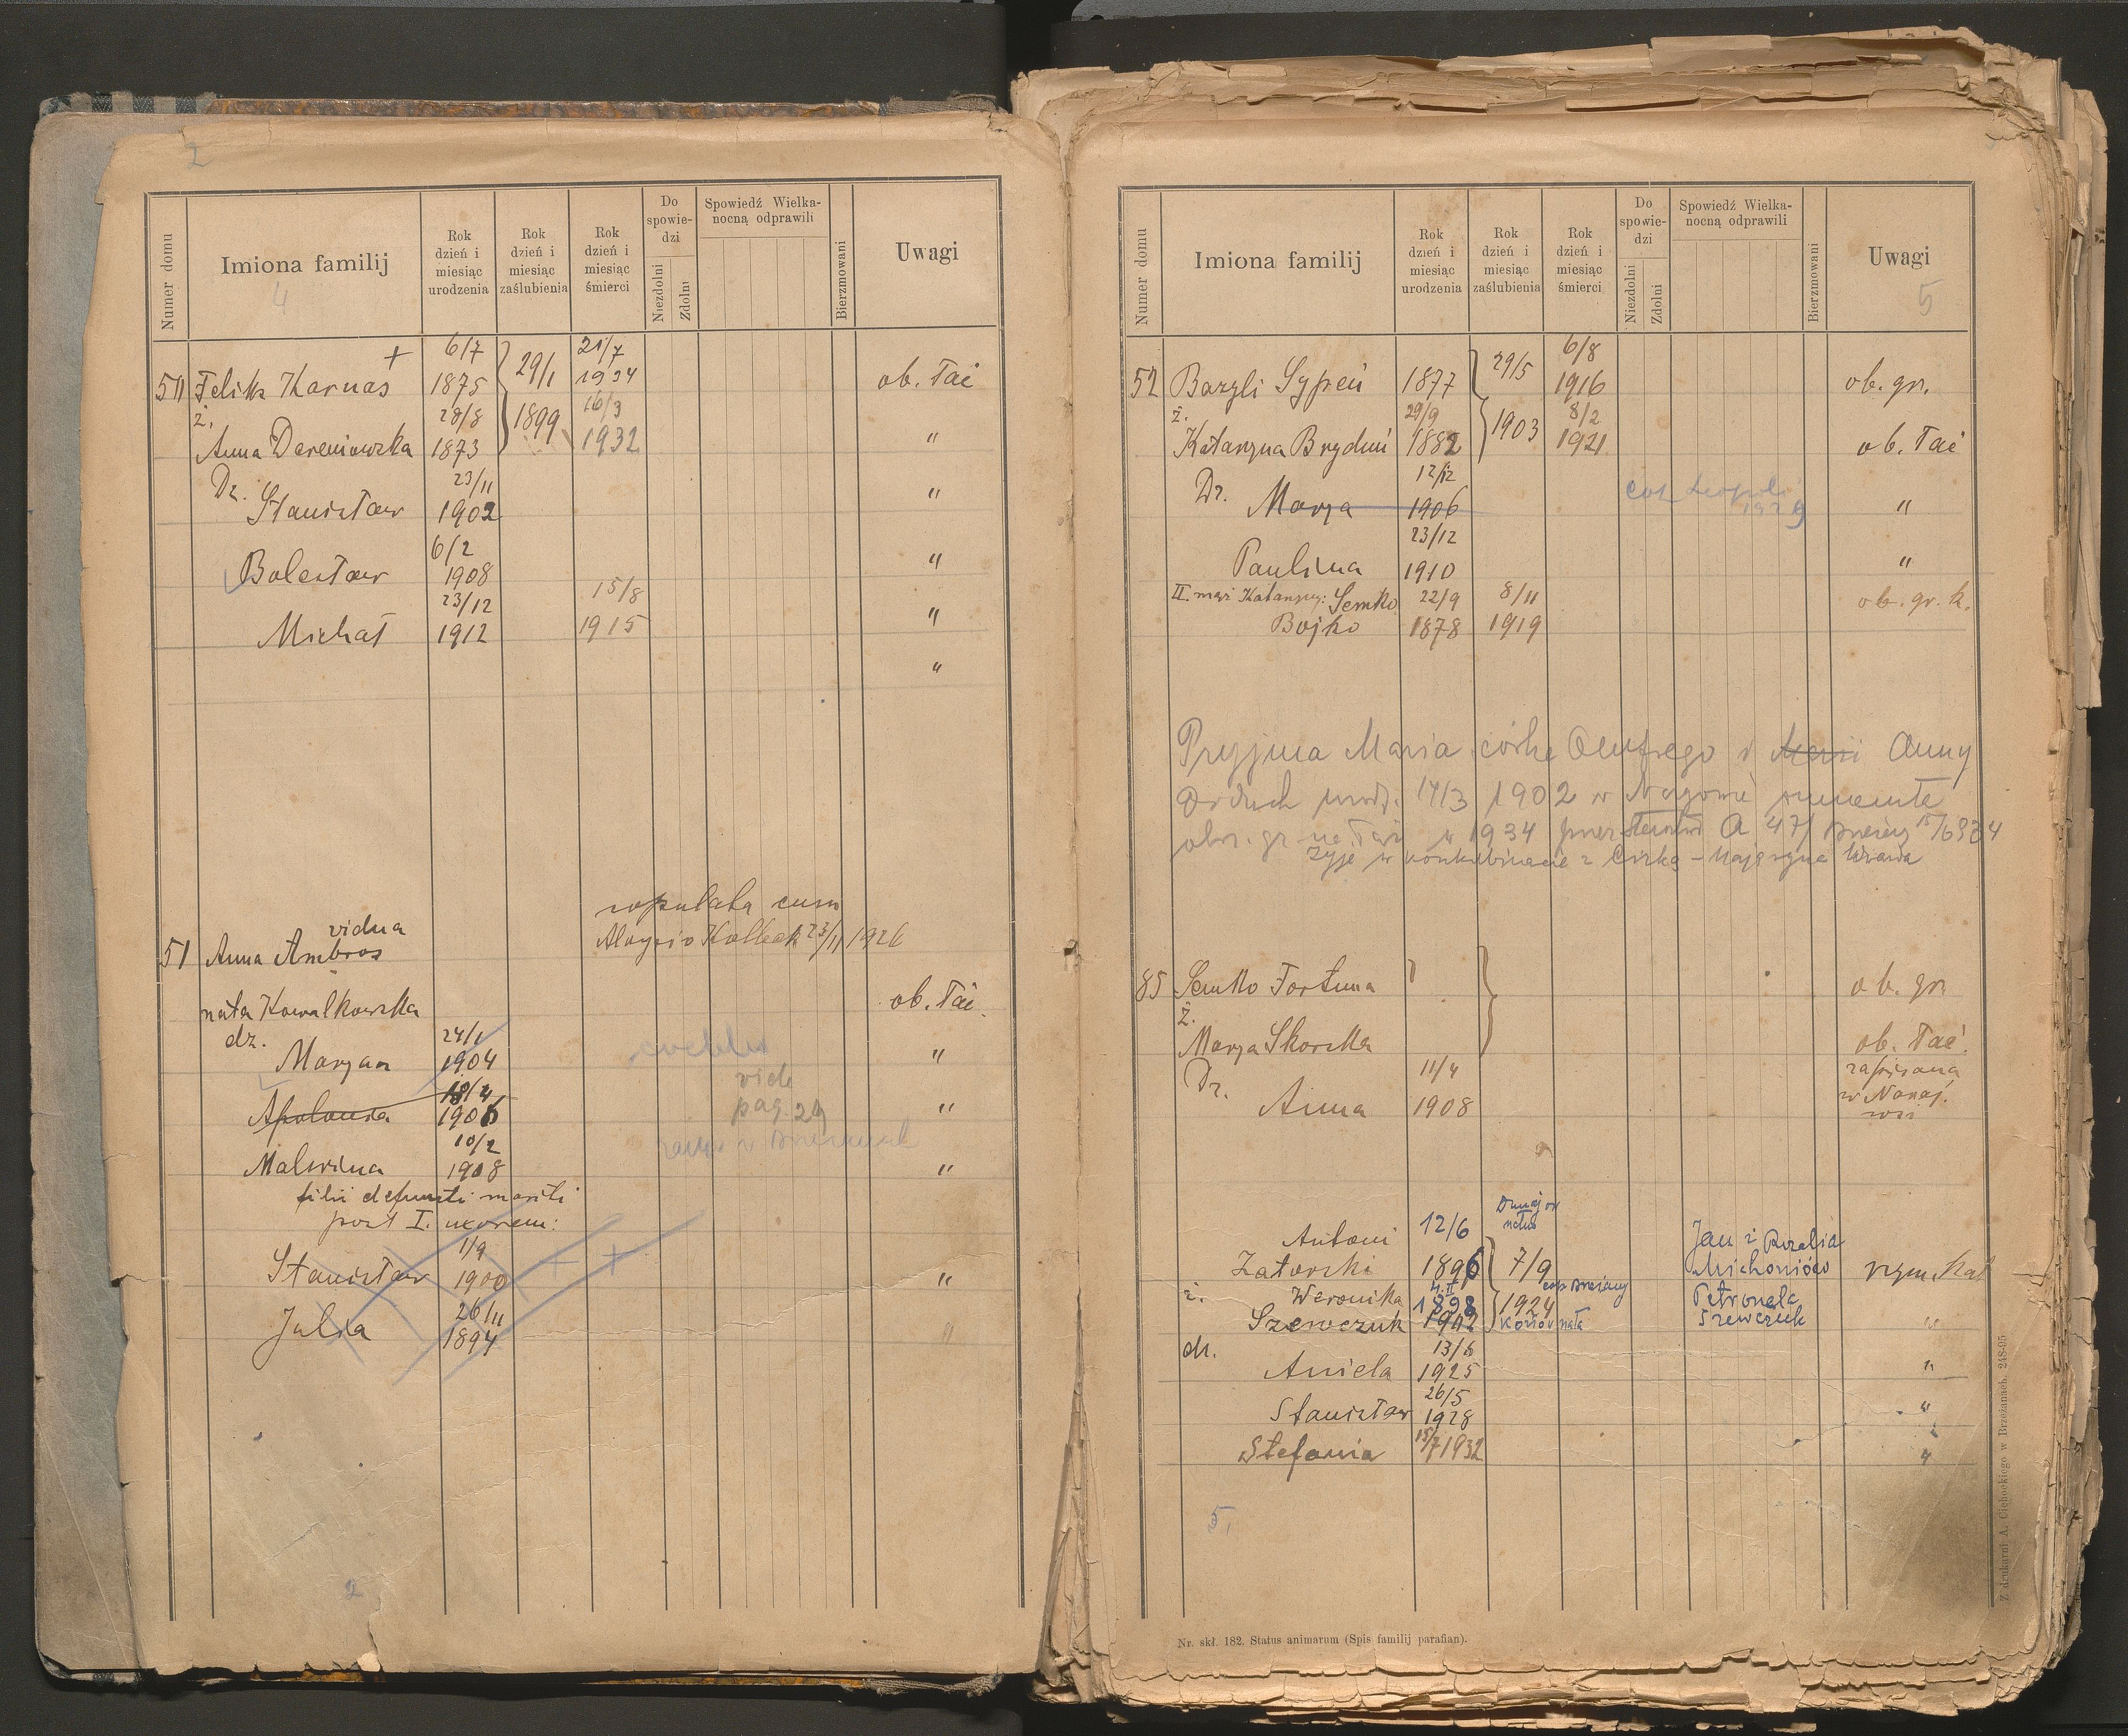 2
Numer domu
Imiona familij
Rok dzień i miesiąc urodzenia
Rok dzień i miesiąc zaślubienia
Rok dzień i miesiąc śmierci
Do spowiedzi
Niezdolni
Zdolni
Spowiedź Wielkanocną odprawili
Bierzmowani
Uwagi
4
6/7 21/7
50 Feliks Karnas + 1875 29/1 1934 ob. łać
ż. 28/8 1899 16/3
Anna Dereniowska 1873 1932 "
Dz. 23/11
Stanisław 1902 "
6/2
Bolesław 1908 "
23/12 15/8
Michał 1912 1915 "
"
copulata cum
vidua Aloysio 23/11 1926
51 Anna Ambros
nata Kowalkowska ob. łać.
dz. 24/1
Maryan 1904 "
18/4 vide
Apolonia 1906 pag. 29 "
10/2
Malwina 1908 "
filii defuncti mariti
post I. uxorem:
1/9
Stanisław 1900 "
26/11
Julia 1894 "
2
Numer domu
Imiona familij
Rok dzień i miesiąc urodzenia
Rok dzień i miesiąc zaślubienia
Rok dzień i miesiąc śmierci
Do spowiedzi
Niezdolni
Zdolni
Spowiedź Wielkanocną odprawili
Bierzmowani
Uwagi
5
6/8
52 Bazyli Sypeń 1877 29/5 1916 ob. gr.
ż. 29/9 1903 8/2
Katarzyna 1882 1921 ob. łać
Dz. 12/12
Marya 1906 "
23/12
Paulina 1910 "
II. mąż Katarzyny: Semko 22/9 8/11 ob. gr. k.
Bojko 1878 1919
Pryjma Maria córka Onufrego i Marii Anny
17/3 1902 w
obrz. gr. na łać w 1934
żyje w konkubinacie z
85 Semko Fortuna ob. gr.
ż.
Marya Skorska ob. łać.
Dz. 11/4 zapisana
Anna 1908 w
natus
Antoni 12/6 Jan i Rozalia
Zatorski 1896 7/9 Michoniów rzym. kat
ż. Weronika 4.II Petronela
Szewczuk 1898 1902 1924 nata Szewczuk "
dz. 13/6
Aniela 1925 "
26/5
Stanisław 1928 "
15/7
Stefania 1932 "
5,
Nr. skł. 182. Status animarum (Spis familij parafian).
Z drukarni A. Cichockiego w Brzeżanach. 248-95